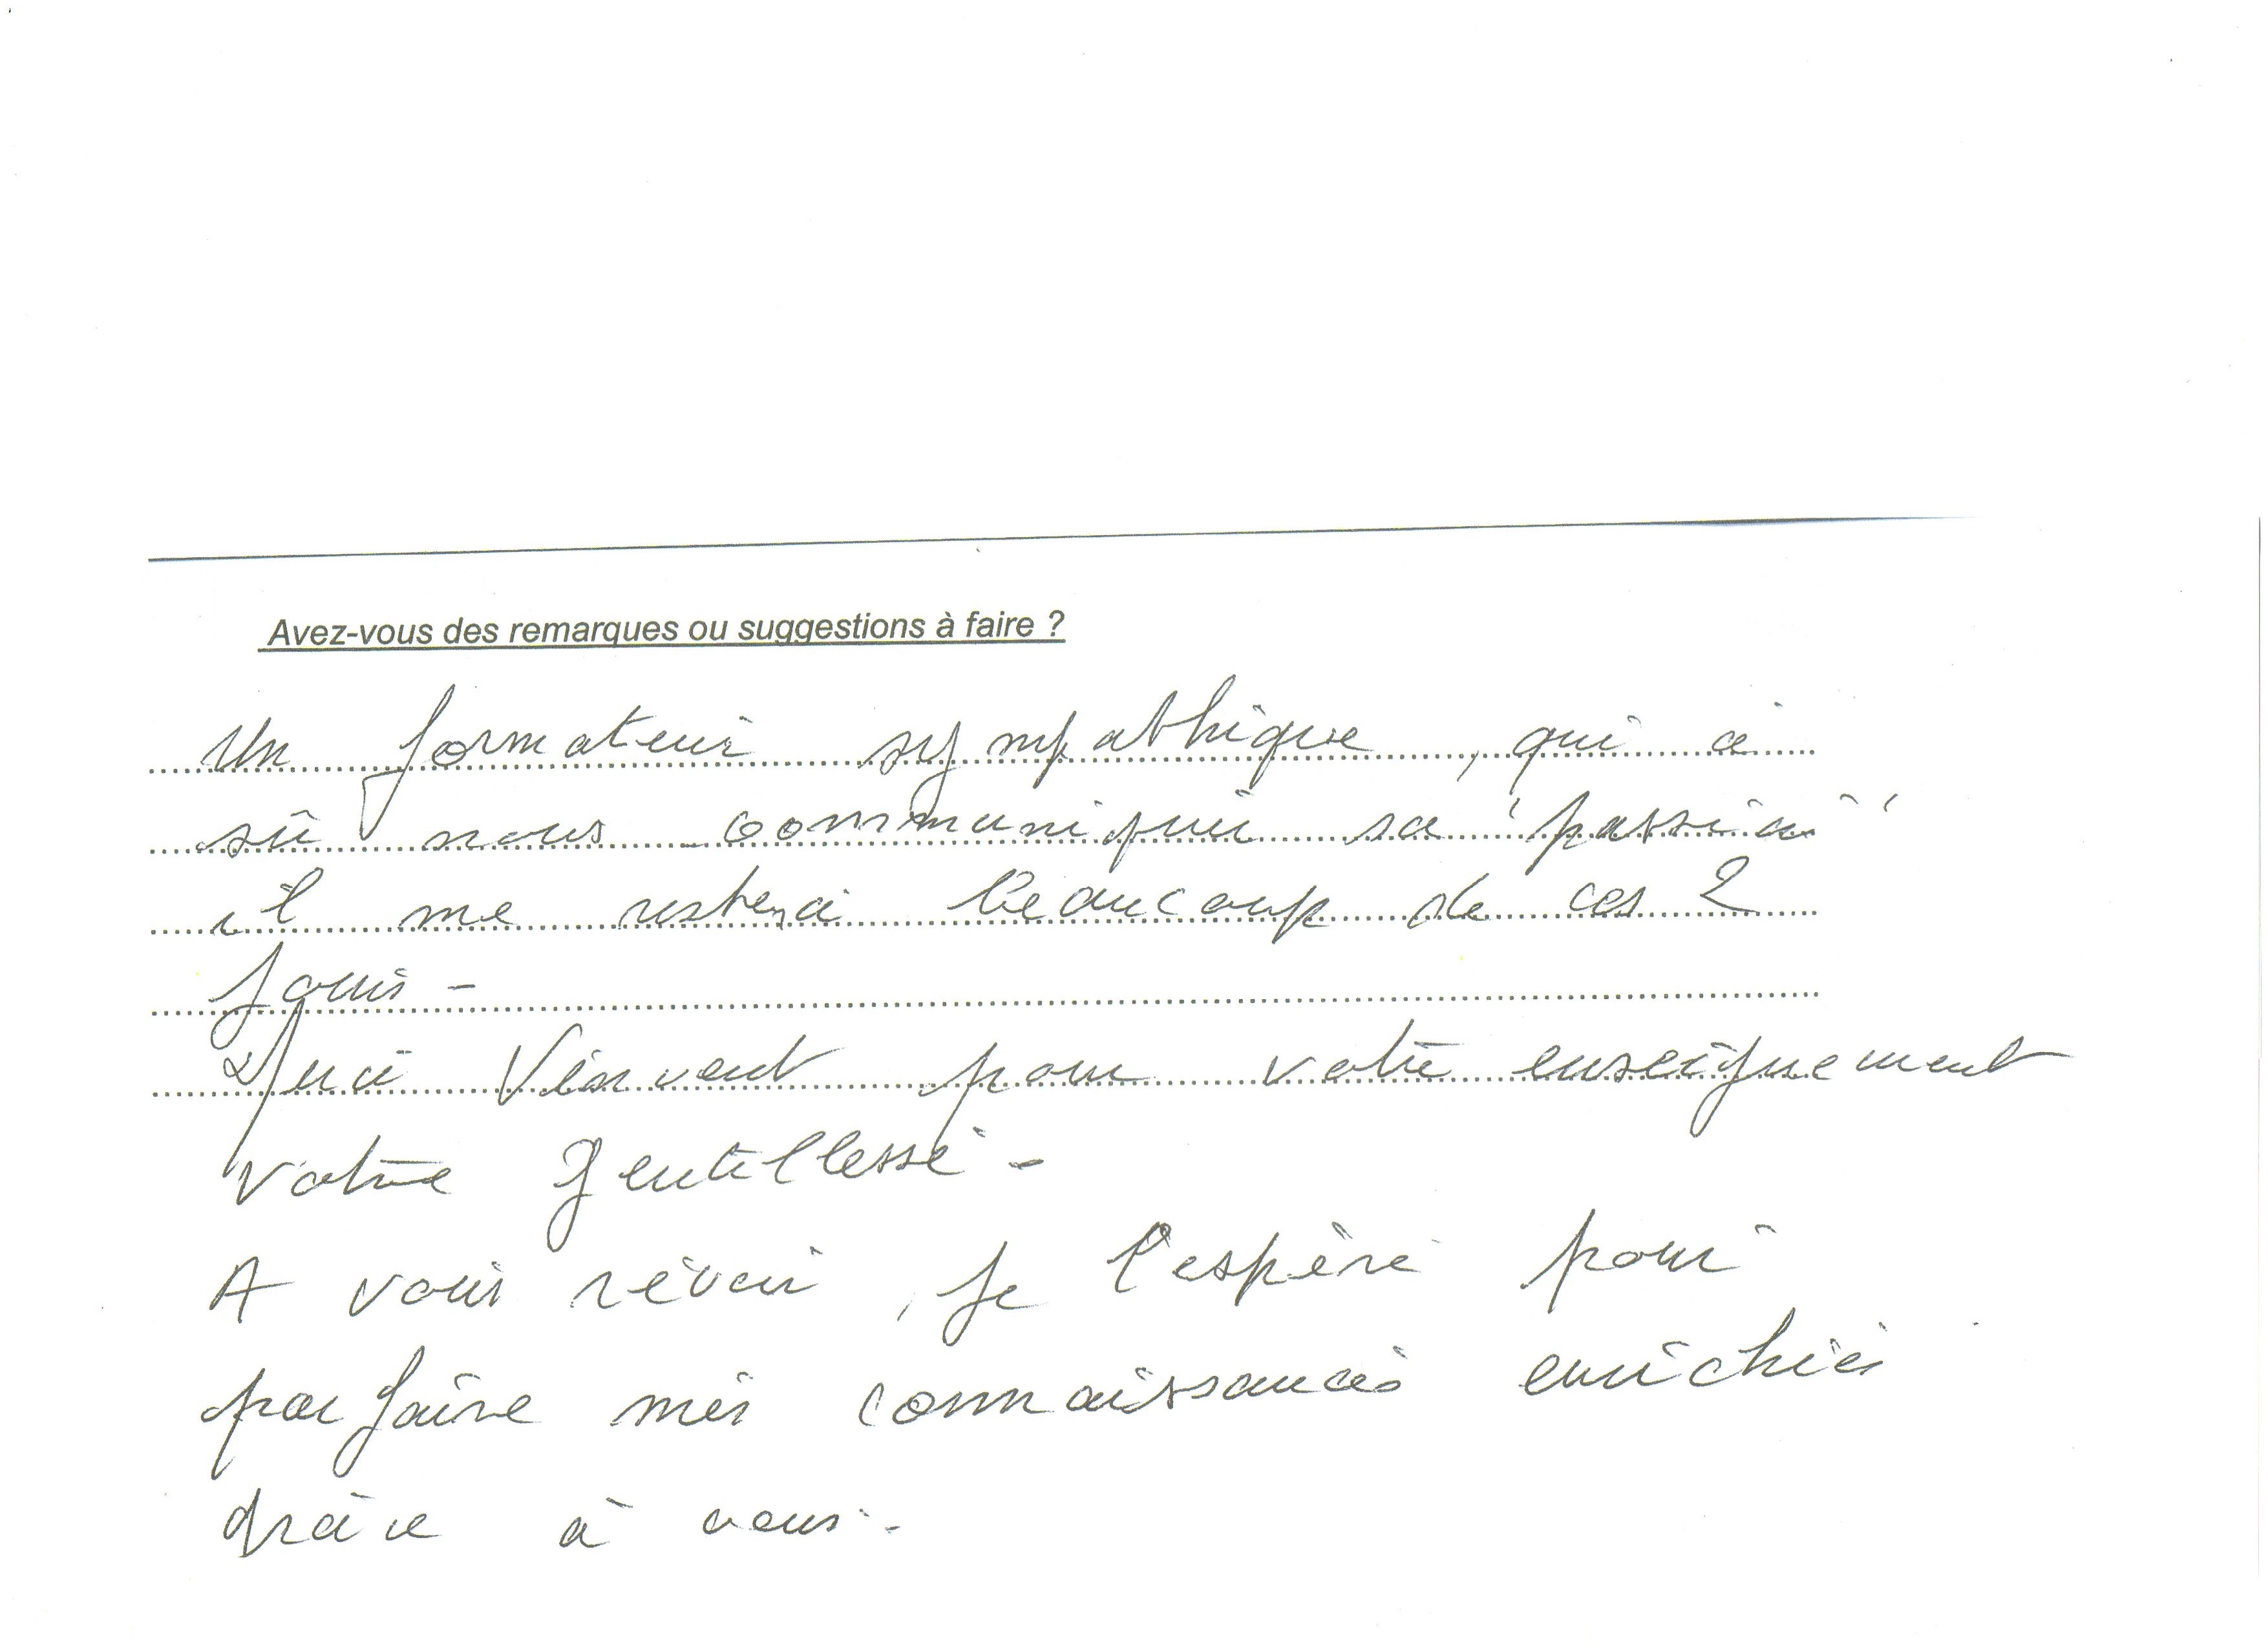 Avez-vous des remarques ou suggestions à faire ?
Un formateur sympathique, qui a
sû nous communiquer sa "passion"
il me restera beaucoup de ces 2
jours -
Merci Vincent pour votre enseignement
votre gentillesse -
A vous revoir, je l'espère pour
parfaire mes connaissances enrichies
grâce à vous -